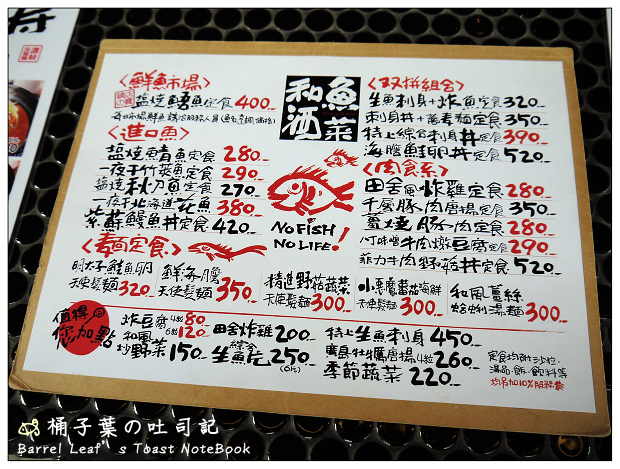 〈鮮魚市場〉
鹽燒鯖魚定食 400
〈進口魚〉
鹽燒鯖魚定食 280
一夜干竹莢魚定食 290
鹽燒秋刀魚定食 270
一夜干北海道花魚 380
蒲燒鰻魚丼定食 420
〈素高定食〉
明太子鮭魚卵
天使髮麵 320
鮮海膽
天使髮麵 350
精進野菇蔬菜
天使髮麵 300
小惡魔蕃茄海鮮
天使髮麵 300
和風薑絲
蛤蜊湯麵 300
和魚
酒菜
NO FISH
NO LIFE!
〈双拼組合〉
生魚刺身+炸魚定食 320
刺身丼+蕎麥麵定食 350
特上綜合刺身丼定食 390
海膽鮭卵丼定食 520
〈肉食系〉
田舍風炸雞定食 280
千層豚肉唐揚定食 350
薑燒豚肉定食 280
八丁味噌牛肉燉豆腐定食 290
菲力牛肉野菇丼定食 520
值得
您加點
炸豆腐 4粒80
6粒120
和風
炒野菜 150
田舍炸雞 200
綜合
生魚片 250
(6片)
特上生魚刺身 450
廣島牡蠣唐揚 4粒 260
季節蔬菜 220
定食均附沙拉、
湯品、飯、飲料等
均另加10%服務費
桶子葉の吐司記
Barrel Leaf's Toast NoteBook